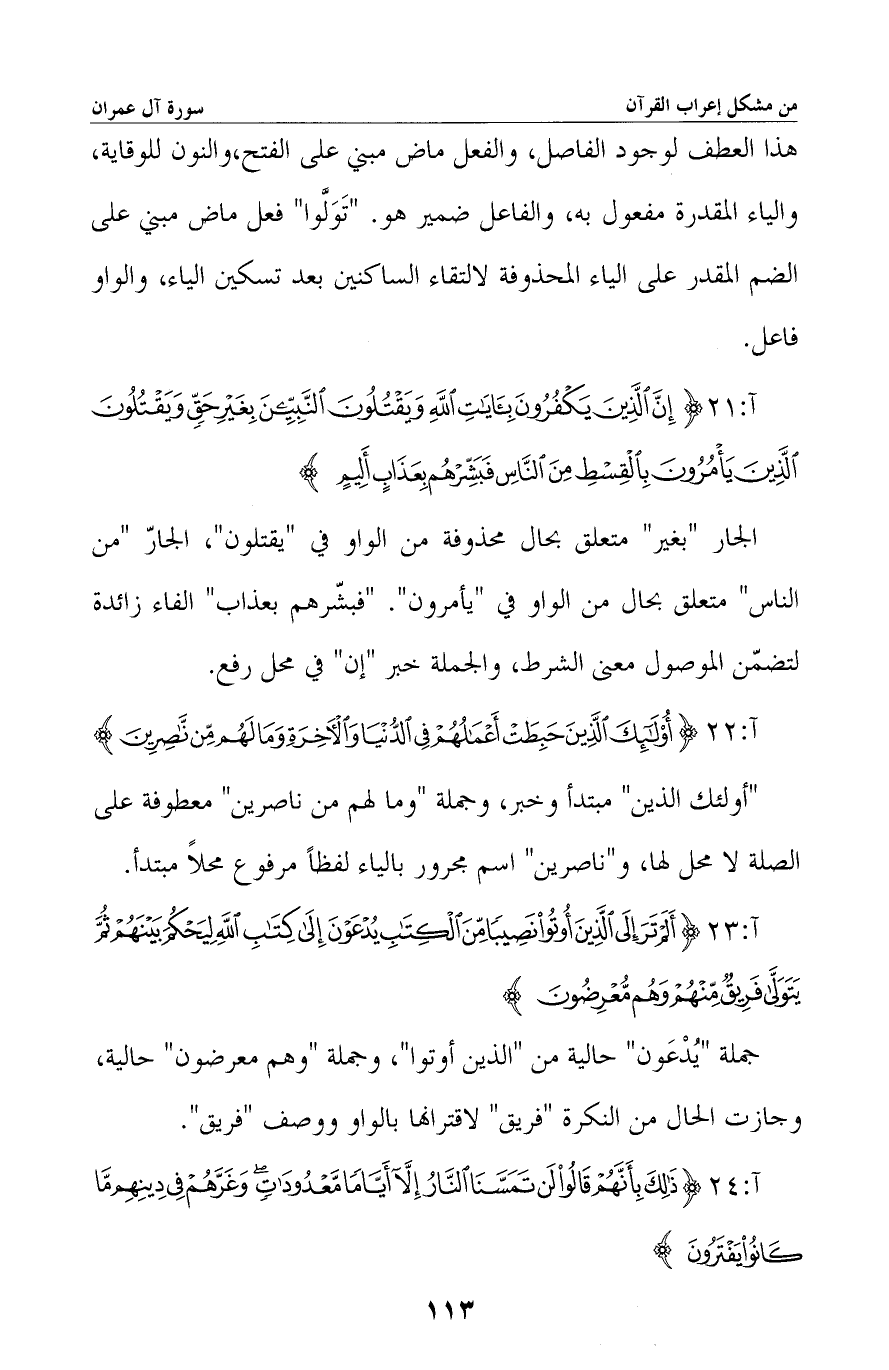 من مشكل إعراب القرآن سورة آل عمران
هذا العطف لوجود الفاصل، والفعل ماض مبني على الفتح،والنون للوقاية،
والياء المقدرة مفعول به، والفاعل ضمير هو. "تَوَلَّوا" فعل ماض مبني على
الضم المقدر على الياء المحذوفة لالتقاء الساكنين بعد تسكين الياء، والواو
فاعل.
آ:٢١ ﴿ إِنَّ ٱلَّذِينَ يَكْفُرُونَ بِـَٔايَـٰتِ ٱللَّهِ وَيَقْتُلُونَ ٱلنَّبِيِّـۧنَ بِغَيْرِ حَقٍّ وَيَقْتُلُونَ
ٱلَّذِينَ يَأْمُرُونَ بِٱلْقِسْطِ مِنَ ٱلنَّاسِ فَبَشِّرْهُم بِعَذَابٍ أَلِيمٍ ﴾
الجار "بغير" متعلق بحال محذوفة من الواو في "يقتلون"، الجارّ "من
الناس" متعلق بحال من الواو في "يأمرون". "فبشّرهم بعذاب" الفاء زائدة
لتضمّن الموصول معنى الشرط، والجملة خبر "إن" في محل رفع.
آ:٢٢ ﴿ أُو۟لَـٰٓئِكَ ٱلَّذِينَ حَبِطَتْ أَعْمَـٰلُهُمْ فِى ٱلدُّنْيَا وَٱلْـَٔاخِرَةِ وَمَا لَهُم مِّن نَّـٰصِرِينَ ﴾
"أولئك الذين" مبتدأ وخبر، وجملة "وما لهم من ناصرين" معطوفة على
الصلة لا محل لها، و"ناصرين" اسم مجرور بالياء لفظاً مرفوع محلاً مبتدأ.
آ:٢٣ ﴿ أَلَمْ تَرَ إِلَى ٱلَّذِينَ أُوتُوا۟ نَصِيبًا مِّنَ ٱلْكِتَـٰبِ يُدْعَوْنَ إِلَىٰ كِتَـٰبِ ٱللَّهِ لِيَحْكُمَ بَيْنَهُمْ ثُمَّ
يَتَوَلَّىٰ فَرِيقٌ مِّنْهُمْ وَهُم مُّعْرِضُونَ ﴾
جملة "يُدْعَون" حالية من "الذين أوتوا"، وجملة "وهم معرضون" حالية،
وجازت الحال من النكرة "فريق" لاقترانها بالواو ووصف "فريق".
آ:٢٤ ﴿ ذَٰلِكَ بِأَنَّهُمْ قَالُوا۟ لَن تَمَسَّنَا ٱلنَّارُ إِلَّآ أَيَّامًا مَّعْدُودَٰتٍ ۖ وَغَرَّهُمْ فِى دِينِهِم مَّا
كَانُوا۟ يَفْتَرُونَ ﴾
١١٣